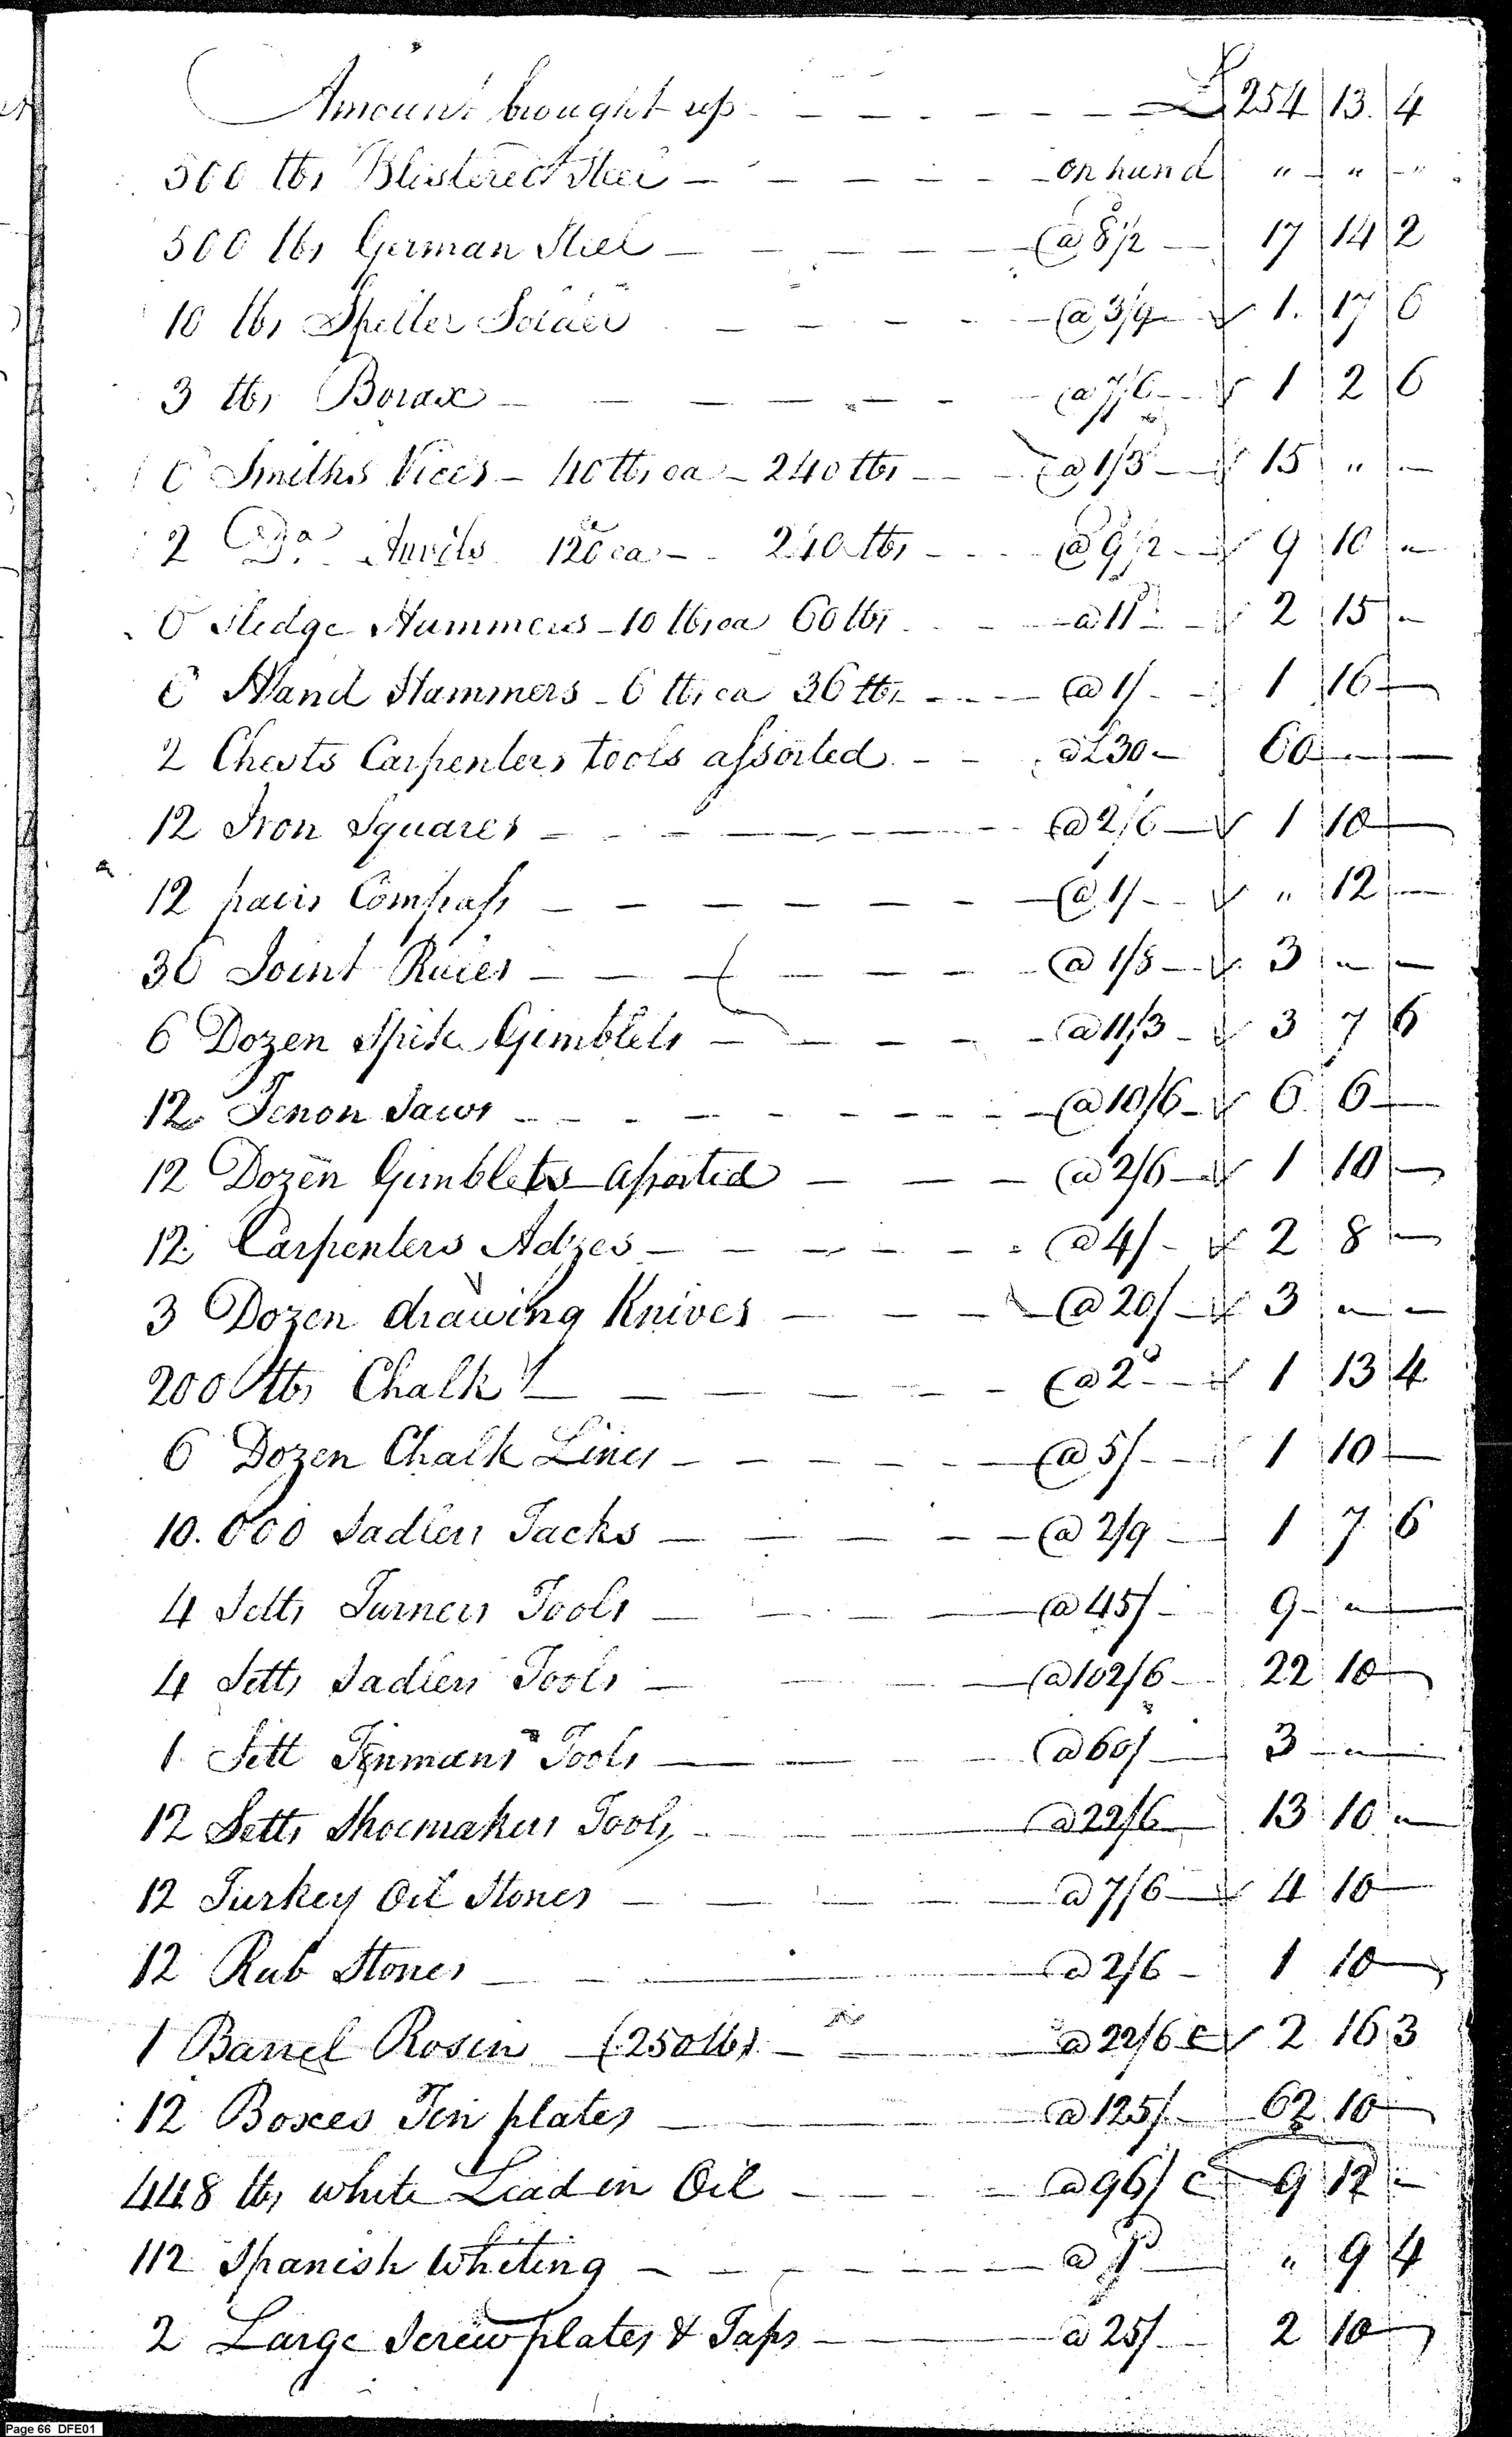 Amount brought up - - - - - - - £ 254 13. 4
500 lbs Blistered Steel - - - - - on hand " - " - "
500 lbs German Steel - - - - - @ 8½ - 17 14 2
10 lbs Spelter Solder - - - - @ 3/9 - 1. 17 6
3 lbs Borax - - - - - - @ 7/6 - 1 2 6
6 Smiths Vices - 40 lbs ea - 240 lbs - - @ 1/3 - 15 " -
2 Do. Anvils 120 ea - 240 lbs - - @ 9½ - 9 10 -
6 Sledge Hammers - 10 lbs ea 60 lbs - - @ 11d - 2 15 -
6 Hand Hammers - 6 lbs ea 36 lbs - - - @ 1/ - 1 16 -
2 Chests Carpenters tools assorted - - @ £30 - 60 - -
12 Iron Squares - - - - - - @ 2/6 - 1 10 -
12 pairs Compass - - - - - - @ 1/ - " 12 -
36 Joint Rules - - - - - - @ 1/8 - 3 - -
6 Dozen Spike Gimblets - - - - - @ 11/3 - 3 7 6
12 Tenon Saws - - - - - - - @ 10/6 - 6 6 -
12 Dozen Gimblets assorted - - - @ 2/6 - 1 10 -
12 Carpenters Adzes - - - - - - @ 4/ - 2 8 -
3 Dozen drawing Knives - - - @ 20/ - 3 - -
200 lbs Chalk - - - - - @ 2d - 1 13 4
6 Dozen Chalk Lines - - - - - @ 5/ - 1 10 -
10.000 Sadlers Tacks - - - - - @ 2/9 - 1 7 6
4 Setts Turners Tools - - - @ 45/ - 9 - " -
4 Setts Sadlers Tools - - - @ 102/6 - 22 10 -
1 Sett Tinmans Tools - - - @ 60/ - 3 - " -
12 Setts Shoemakers Tools - - @ 22/6 13 10 -
12 Turkey Oil Stones - - - - @ 7/6 - 4 10 -
12 Rub Stones - - - @ 2/6 - 1 10 -
1 Barrel Rosin (250 lbs) - - @ 22/6 C 2 16 3
12 Boxes Tin plates - - - @ 125/ - 62 10 -
448 lbs white Lead in Oil - - - @ 96/ C 9 12 -
112 Spanish Whiting - - - - - @ 1d - " 9 4
2 Large Screw plates & Taps - - @ 25/ - 2 10 -
Page 66 DFE01